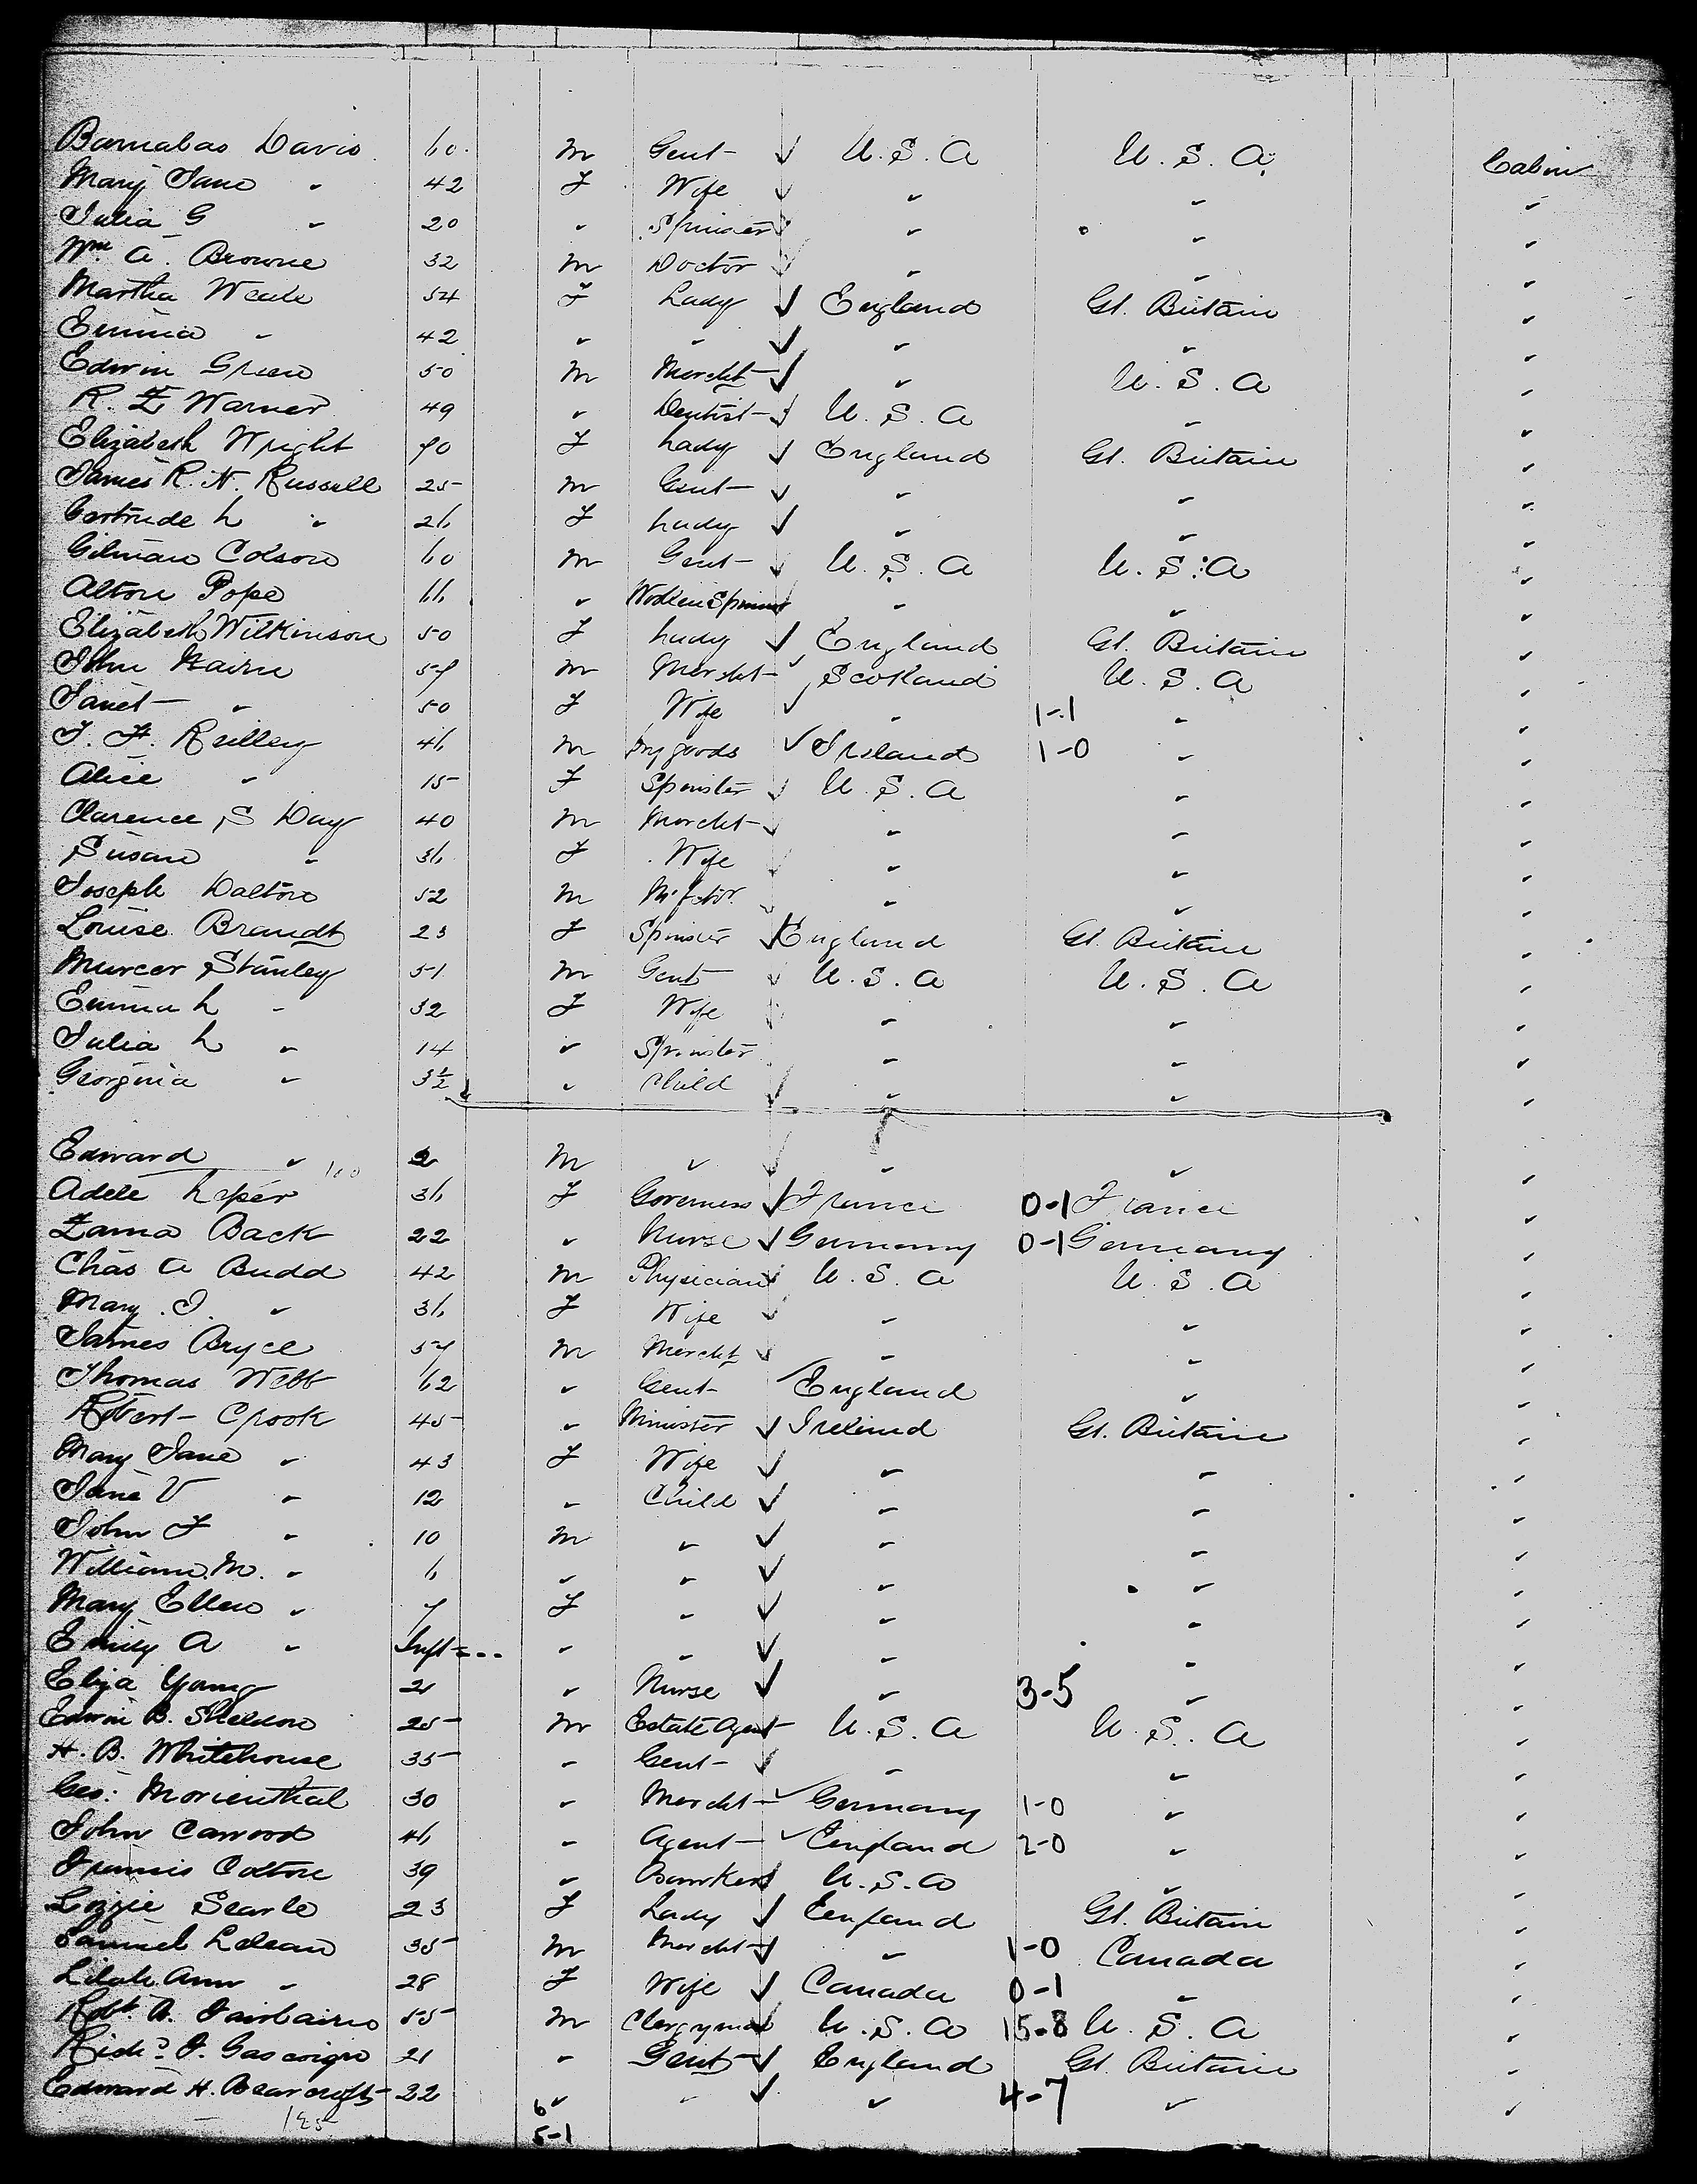 Barnabas Davis 60 M Gent U.S.A U.S.A. Cabin
Mary Jane " 42 F Wife " " "
Julia G " 20 " Spinster " " "
Wm A. Browne 32 M Doctor " " "
Martha Weale 54 F Lady England Gt. Britain "
Emma " 42 " " " " "
Edwin Green 50 M Mercht " U.S.A "
R. E Warner 49 " Dentist U.S.A " "
Elizabeth Wright 70 F Lady England Gt. Britain "
James R. N. Russell 25 M Gent " " "
Gertrude L " 26 F Lady " " "
Gilman Colson 60 M Gent U.S.A U.S.A "
Alton Pope 66 " Woolen " " "
Elizabeth Wilkinson 50 F Lady England Gt. Britain "
John Nairn 57 M Mercht Scotland U.S.A "
Janet " 50 F Wife " 1-1 " "
J. F. Reilley 46 M Dry goods Ireland 1-0 " "
Alice " 15 F Spinster U.S.A " "
Clarence S Day 40 M Mercht " " "
Susan " 36 F Wife " " "
Joseph Dalton 52 M " " "
Louise Brandt 23 F Spinster England Gt. Britain "
Murcer Stanley 51 M Gent U.S.A U.S.A "
Emma L " 32 F Wife " " "
Julia L " 14 " Spinster " " "
Georgina " 3½ " Child " " "
Edward " 2 M " " " "
Adele 36 F Governess France 0-1 France "
Back 22 " Nurse Germany 0-1 Germany "
Chas A Budd 42 M Physician U.S.A U.S.A "
Mary J. " 36 F Wife " " "
James Bryce 57 M Mercht " " "
Thomas Webb 62 " Gent England " "
Robert Crook 45 " Minister Ireland Gt. Britain "
Mary Jane " 43 F Wife " " "
Jane V " 12 " Child " " "
John F " 10 M " " " "
William M. " 6 " " " " "
Mary Ellen " 7 F " " " "
Emily A " Inft " " " " "
Eliza Young 21 " Nurse " 3-5 " "
Edwin B. Sheldon 25 M Estate Agent U.S.A U.S.A "
H. B. Whitehouse 35 " Gent " " "
Geo: Morienthal 30 " Mercht Germany 1-0 " "
John Cawood 46 " Agent England 2-0 " "
Francis Colton 39 " Banker U.S.A " "
Lizzie Searle 23 F Lady England Gt. Britain "
Samuel 35 M Mercht " 1-0 Canada "
Ann " 28 F Wife Canada 0-1 " "
Robt. A. Fairbairn 55 M Clergyman U.S.A 15-8 U.S.A "
Richd F. Gascoigne 21 " Gent England Gt. Britain "
Edward H. Bearcroft 22 " " " 4-7 " "
5-1